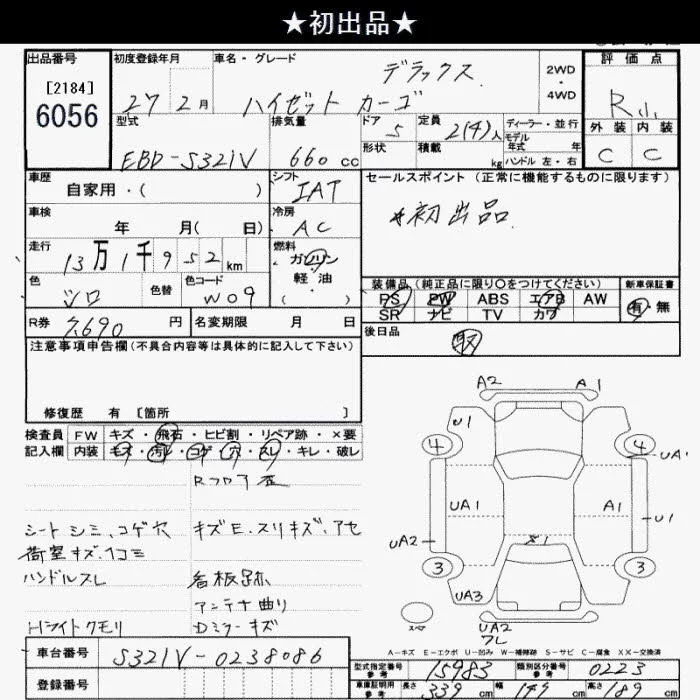 ★初出品★
出品番号 初度登録年月 車名・グレード 評価点
[2184]
6056
27 2月 ハイゼット カーゴ デラックス 2WD・4WD R小
型式 排気量 ドア 定員 ディーラー・並行 外装 内装
EBD-S321V 660cc 5 2(4)人 モデル年式 年 C C
形状 積載 kg ハンドル 左・右
車歴 シフト セールスポイント(正常に機能するものに限ります)
自家用・( ) IAT
*初出品
車検 冷房
年 月( 日) AC
走行 燃料
13万1千952km ガソリン
軽・油
・( )
色 色替 色コード
シロ W09
装備品(純正品に限り○をつけてください) 新車保証書
PS PW ABS エアB AW 有・無
SR ナビ TV カワ
R券 7,690円 名変期限 月 日
後日品 取
注意事項申告欄(不具合内容等は具体的に記入して下さい)
修復歴 有 [箇所 ]
検査員 FW キズ・飛石・ヒビ割・リペア跡・×要
記入欄 内装 キズ・汚レ・コゲ・穴・スレ・キレ・破レ
シート シミ、コゲ穴 キズE、スリキズ、アセ
荷室キズ、凹コミ
ハンドルスレ 看板跡
アンテナ曲り
Hライトクモリ Dミラーキズ
A2 A1
U1
4 4 UA1
UA1 A1 U1
UA2 X1
3 3
UA3
スペア UA2
フレ
A-キズ E-エクボ U-凹み W-補修跡 S-サビ C-腐食 XX-交換済
車台番号 S321V-0238086
登録番号
型式指定番号 参考 15983 類別区分番号 参考 0223
車庫証明用 参考 長さ 339cm 幅 147cm 高さ 189cm